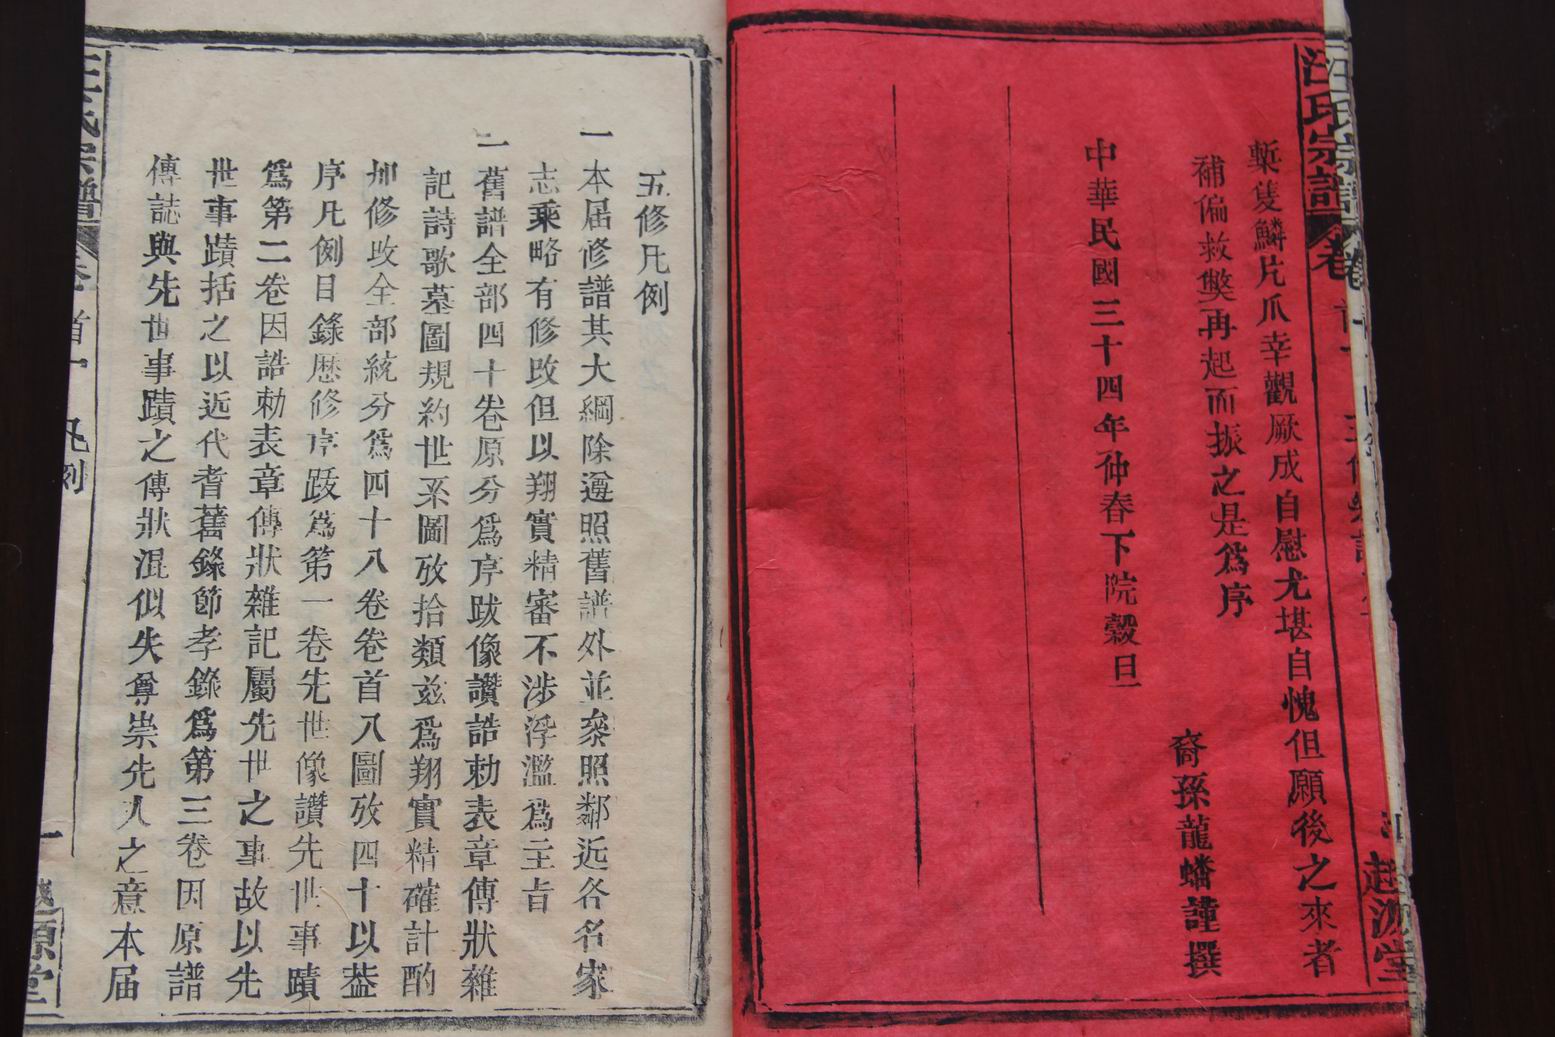 汪氏宗譜
卷首一
越源堂
蹔隻鱗片爪幸觀厥成自慰尤堪自愧但願後之來者
補偏救弊再起而振之是爲序
裔孫龍蟠謹撰
中華民國三十四年仲春下院穀旦
五修凡例
一本届修譜其大綱除遵照舊譜外並叅照鄰近各名家
志乘略有修改但以翔實精審不涉浮濫爲主旨
一舊譜全部四十卷原分爲序跋像讚誥勅表章傳狀雜
記詩歌墓圖規約世系圖攷拾類兹爲翔實精確計酌
加修改全部統分爲四十八卷卷首八圖攷四十以葢
序凡例目錄歷修序跋爲第一卷先世像讚先世事蹟
爲第二卷因誥勅表章傳狀雜記屬先世之事故以先
世事蹟括之以近代耆舊錄節孝錄爲第三卷因原譜
傳誌與先世事蹟之傳狀混似失尊崇先人之意本届
汪氏宗譜
卷首一
凡例
一
越源堂